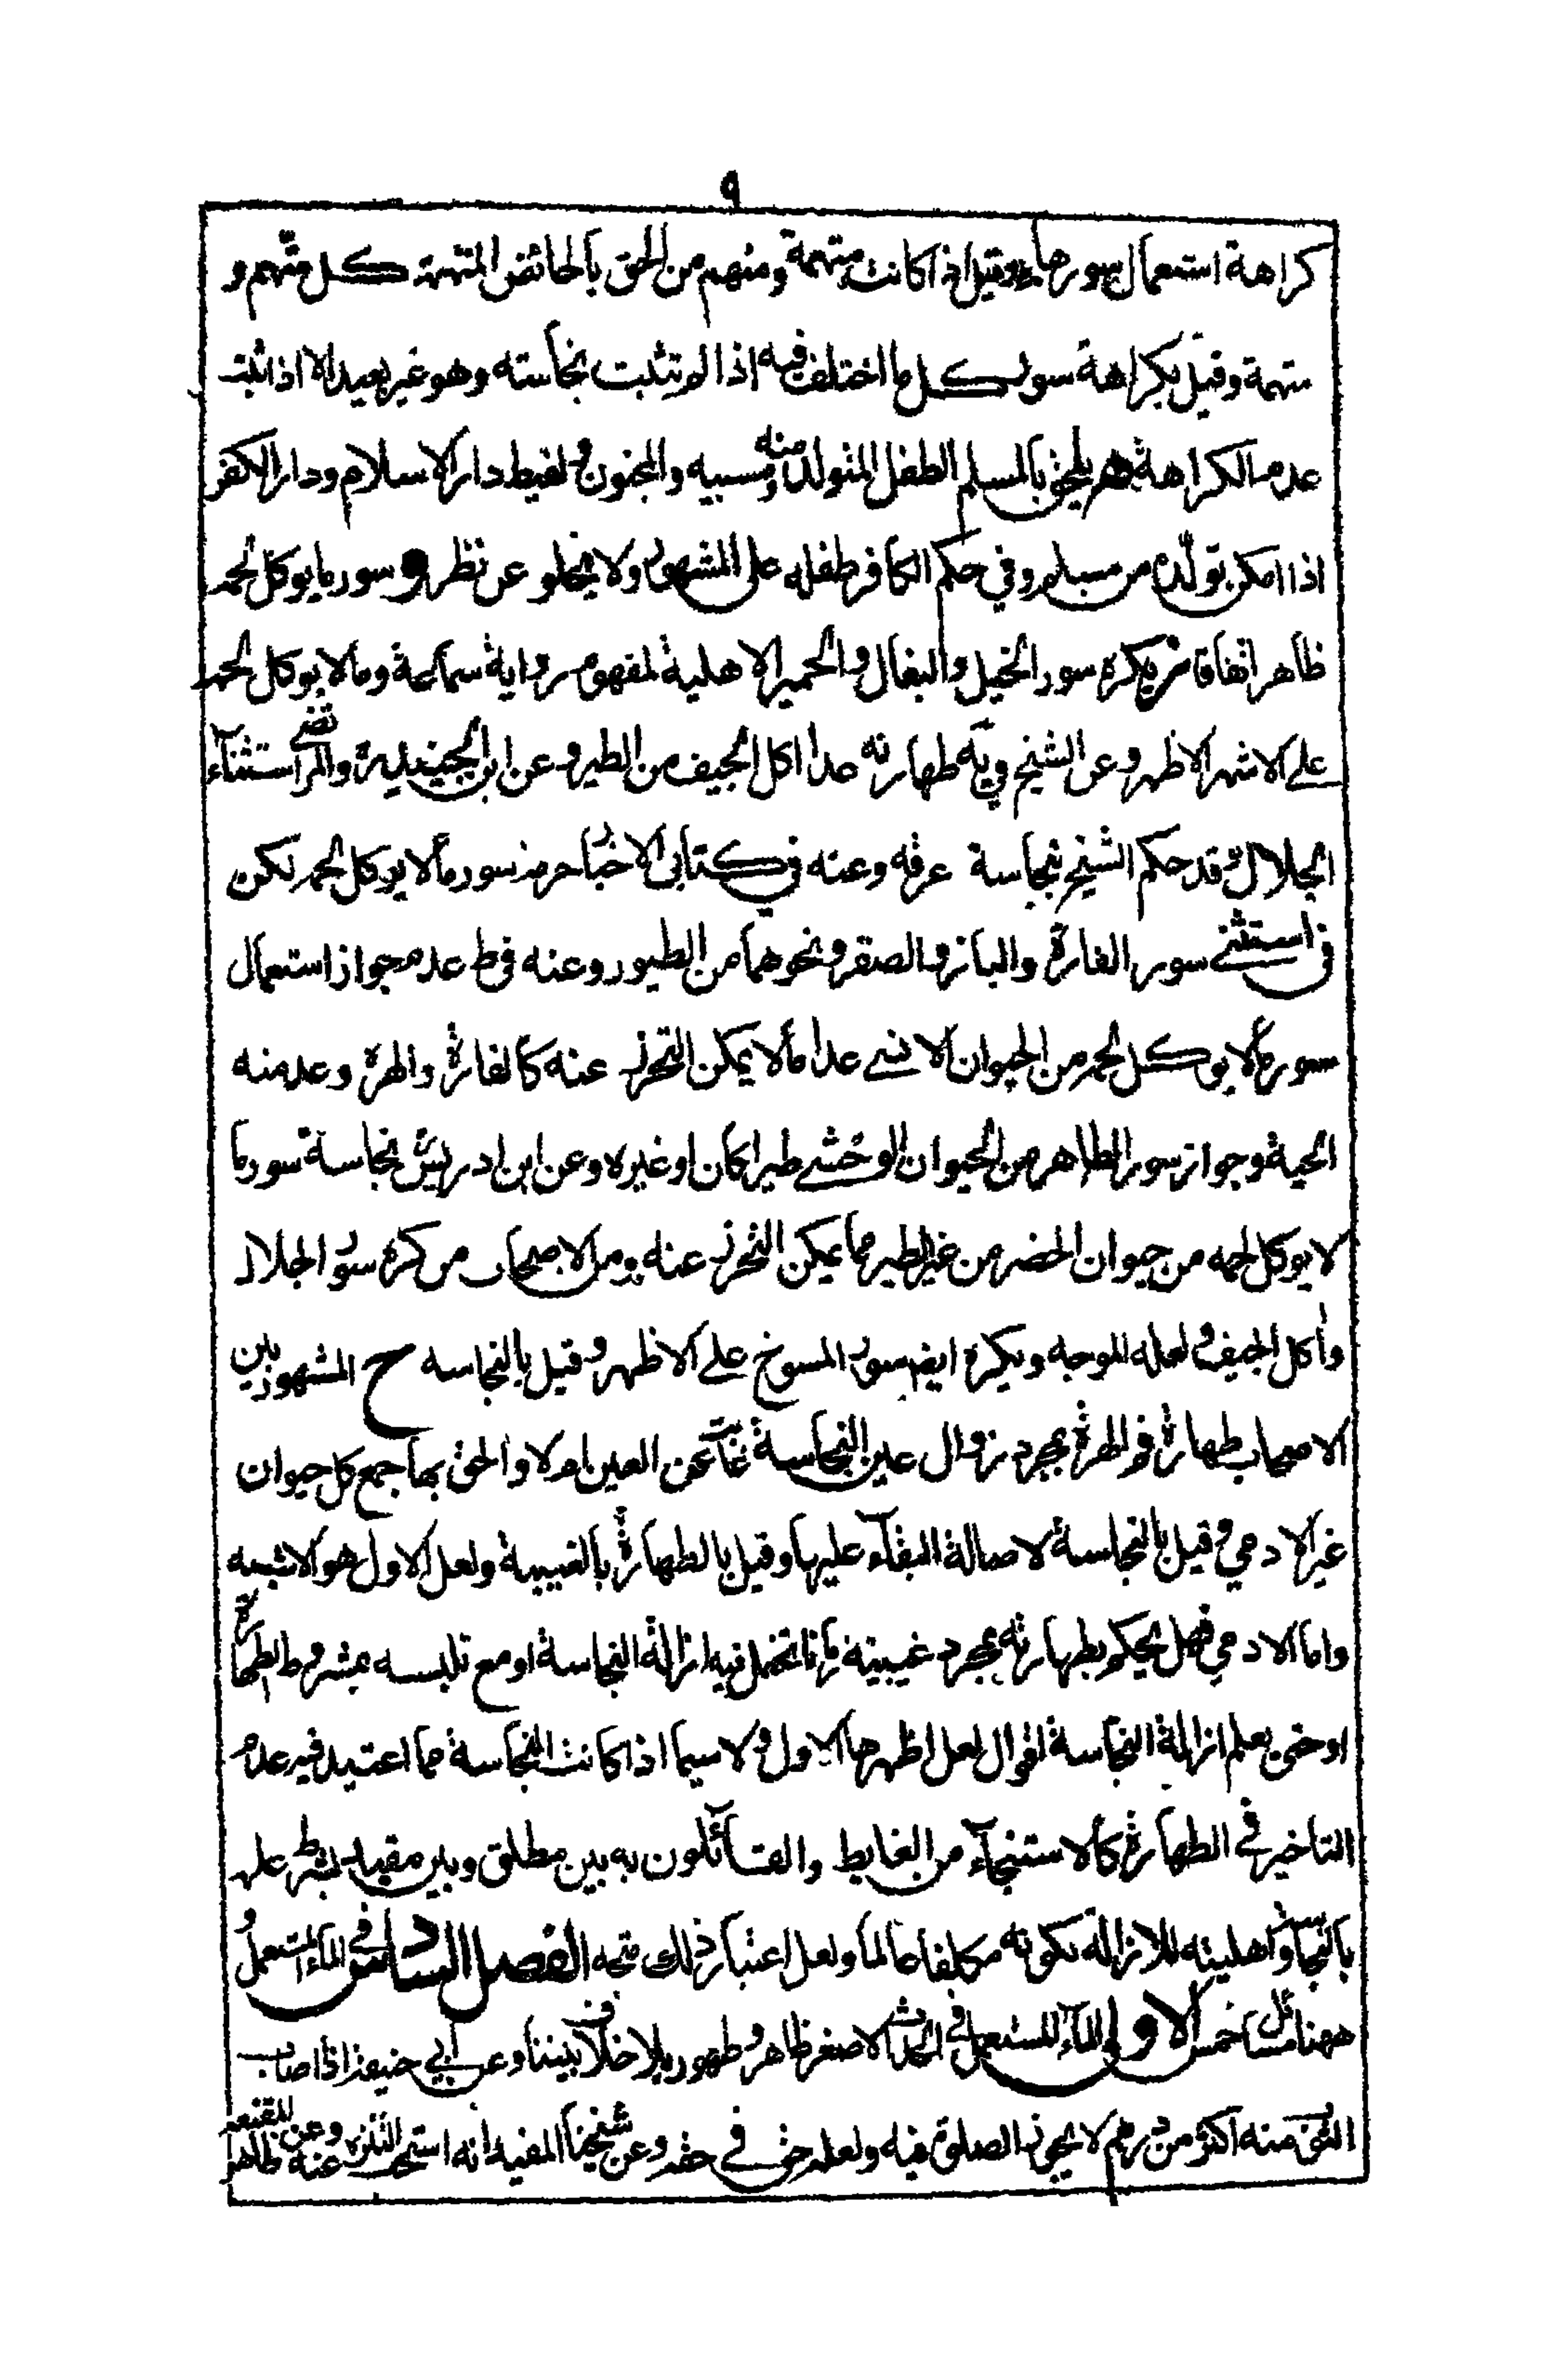 ٩
كراهة استعمال سورها وقيل اذا كانت متهمة ومنهم من الحق بالحائض المتهمة كل متهم و
متهمة وقيل بكراهة سور كل ما اختلف فيه اذا لم تثبت نجاسته وهو غير بعيد الا اذا ثبت
عدم الكراهة ثم يلحق بالمسلم الطفل المتولد منه ومسبيه والمجنون ولقيط دار الاسلام ودار الكفر
اذا امكن تولّده من مسلم وفي حكم الكافر طفله على المشهور ولا يخلو عن نظر و سور ما يوكل لحمه
طاهر اتفاقا نعم يكره سور الخيل والبغال والحمير الاهلية لمفهوم رواية سماعة وما لا يوكل لحمه
على الاشهر الاظهر وعن الشيخ في يه طهارته عدا اكل الجيف من الطير وعن ابن الجنيد والمرتضى استثناء
الجلال وقد حكم الشيخ بنجاسة عرقه وعنه في كتابي الاخبار حرمة سور ما لا يوكل لحمه لكن
استثنى سور الفارة والباز والصقر ونحوهما من الطيور وعنه في ط عدم جواز استعمال
سور ما لا يوكل لحمه من الحيوان الانسي عدا ما لا يمكن التحرز عنه كالفارة والهرة وعد منه
الحية وجواز سور الطاهر من الحيوان الوحشي طيرا كان او غيره وعن ابن ادريس نجاسة سور ما
لا يوكل لحمه من حيوان الحضر من غير الطير مما يمكن التحرز عنه ومن الاصحاب من كره سور الجلال
واكل الجيف ولعله الموجه ويكره ايضا سور المسوخ على الاظهر وقيل بالنجاسة ح المشهور بين
الاصحاب طهارة فم الهرة بمجرد زوال عين النجاسة غابت عن العين ام لا والحق بها جمع كل حيوان
غير الادمي وقيل بالنجاسة لاصالة البقآء عليها وقيل بالطهارة بالغيبة ولعل الاول هو الاشبه
واما الادمي فهل يحكم بطهارته بمجرد غيبته زمانا تحتمل فيه ازالة النجاسة او مع تلبسه بمشروط بالطهارة
او حتى يعلم ازالة النجاسة اقوال لعل اظهرها الاول ولا سيما اذا كانت النجاسة مما اعتيد فيه عدم
التاخير في الطهارة كالاستنجآء من الغايط والقائلون به بين مطلق وبين مقيد بشرط علمه
بالنجاسة واهليته للازالة بكونه مكلفا عالما ولعل اعتبار ذلك متجه الفصل السادس في المآء المستعمل و
ههنا مسائل خمس الاولى المآء المستعمل في الحدث الاصغر طاهر وطهور بلا خلاف بيننا وعن ابي حنيفة اذا اصاب
الثوب منه اكثر من درهم لا يجوز الصلوة فيه ولعله حق في حقه وعن شيخنا المفيد انه استحب التنزه عنه وعن المقنعة ظاهر